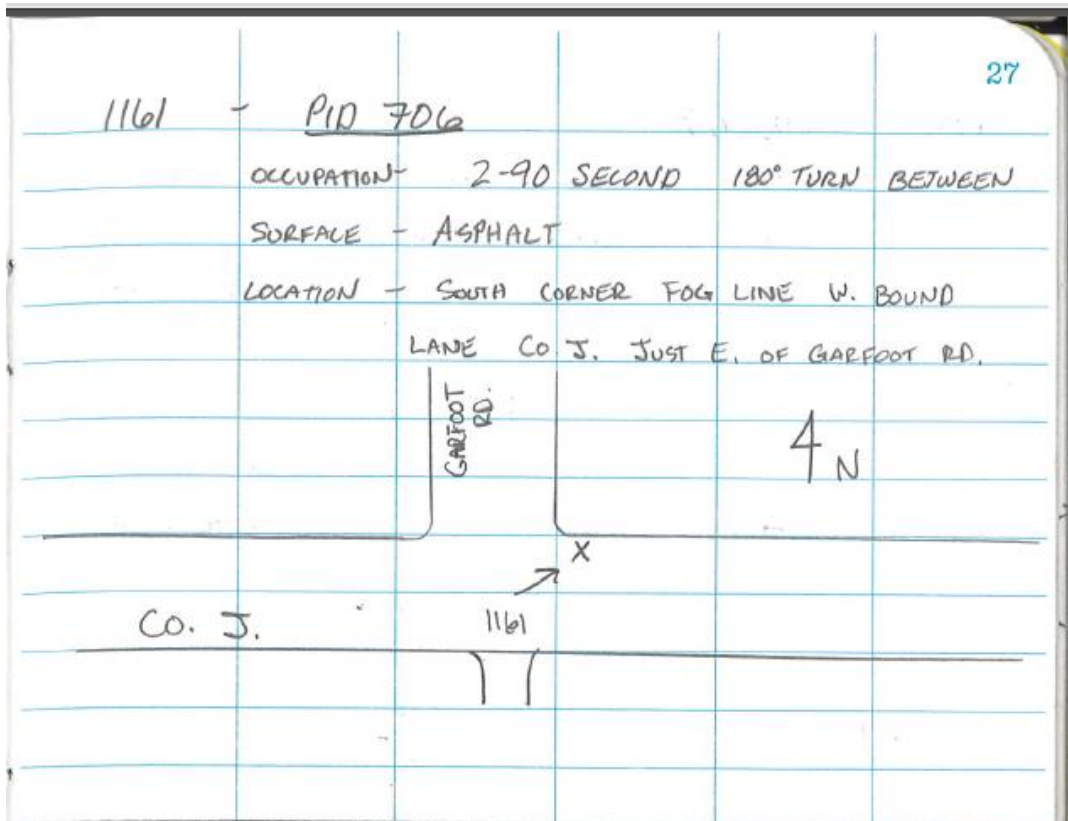 27
1161 - PID 706
OCCUPATION- 2-90 SECOND 180° TURN BETWEEN
SURFACE - ASPHALT
LOCATION - SOUTH CORNER FOG LINE W. BOUND
LANE CO J. JUST E. OF GARFOOT RD.
GARFOOT
RD.
N
X
1161
CO. J.